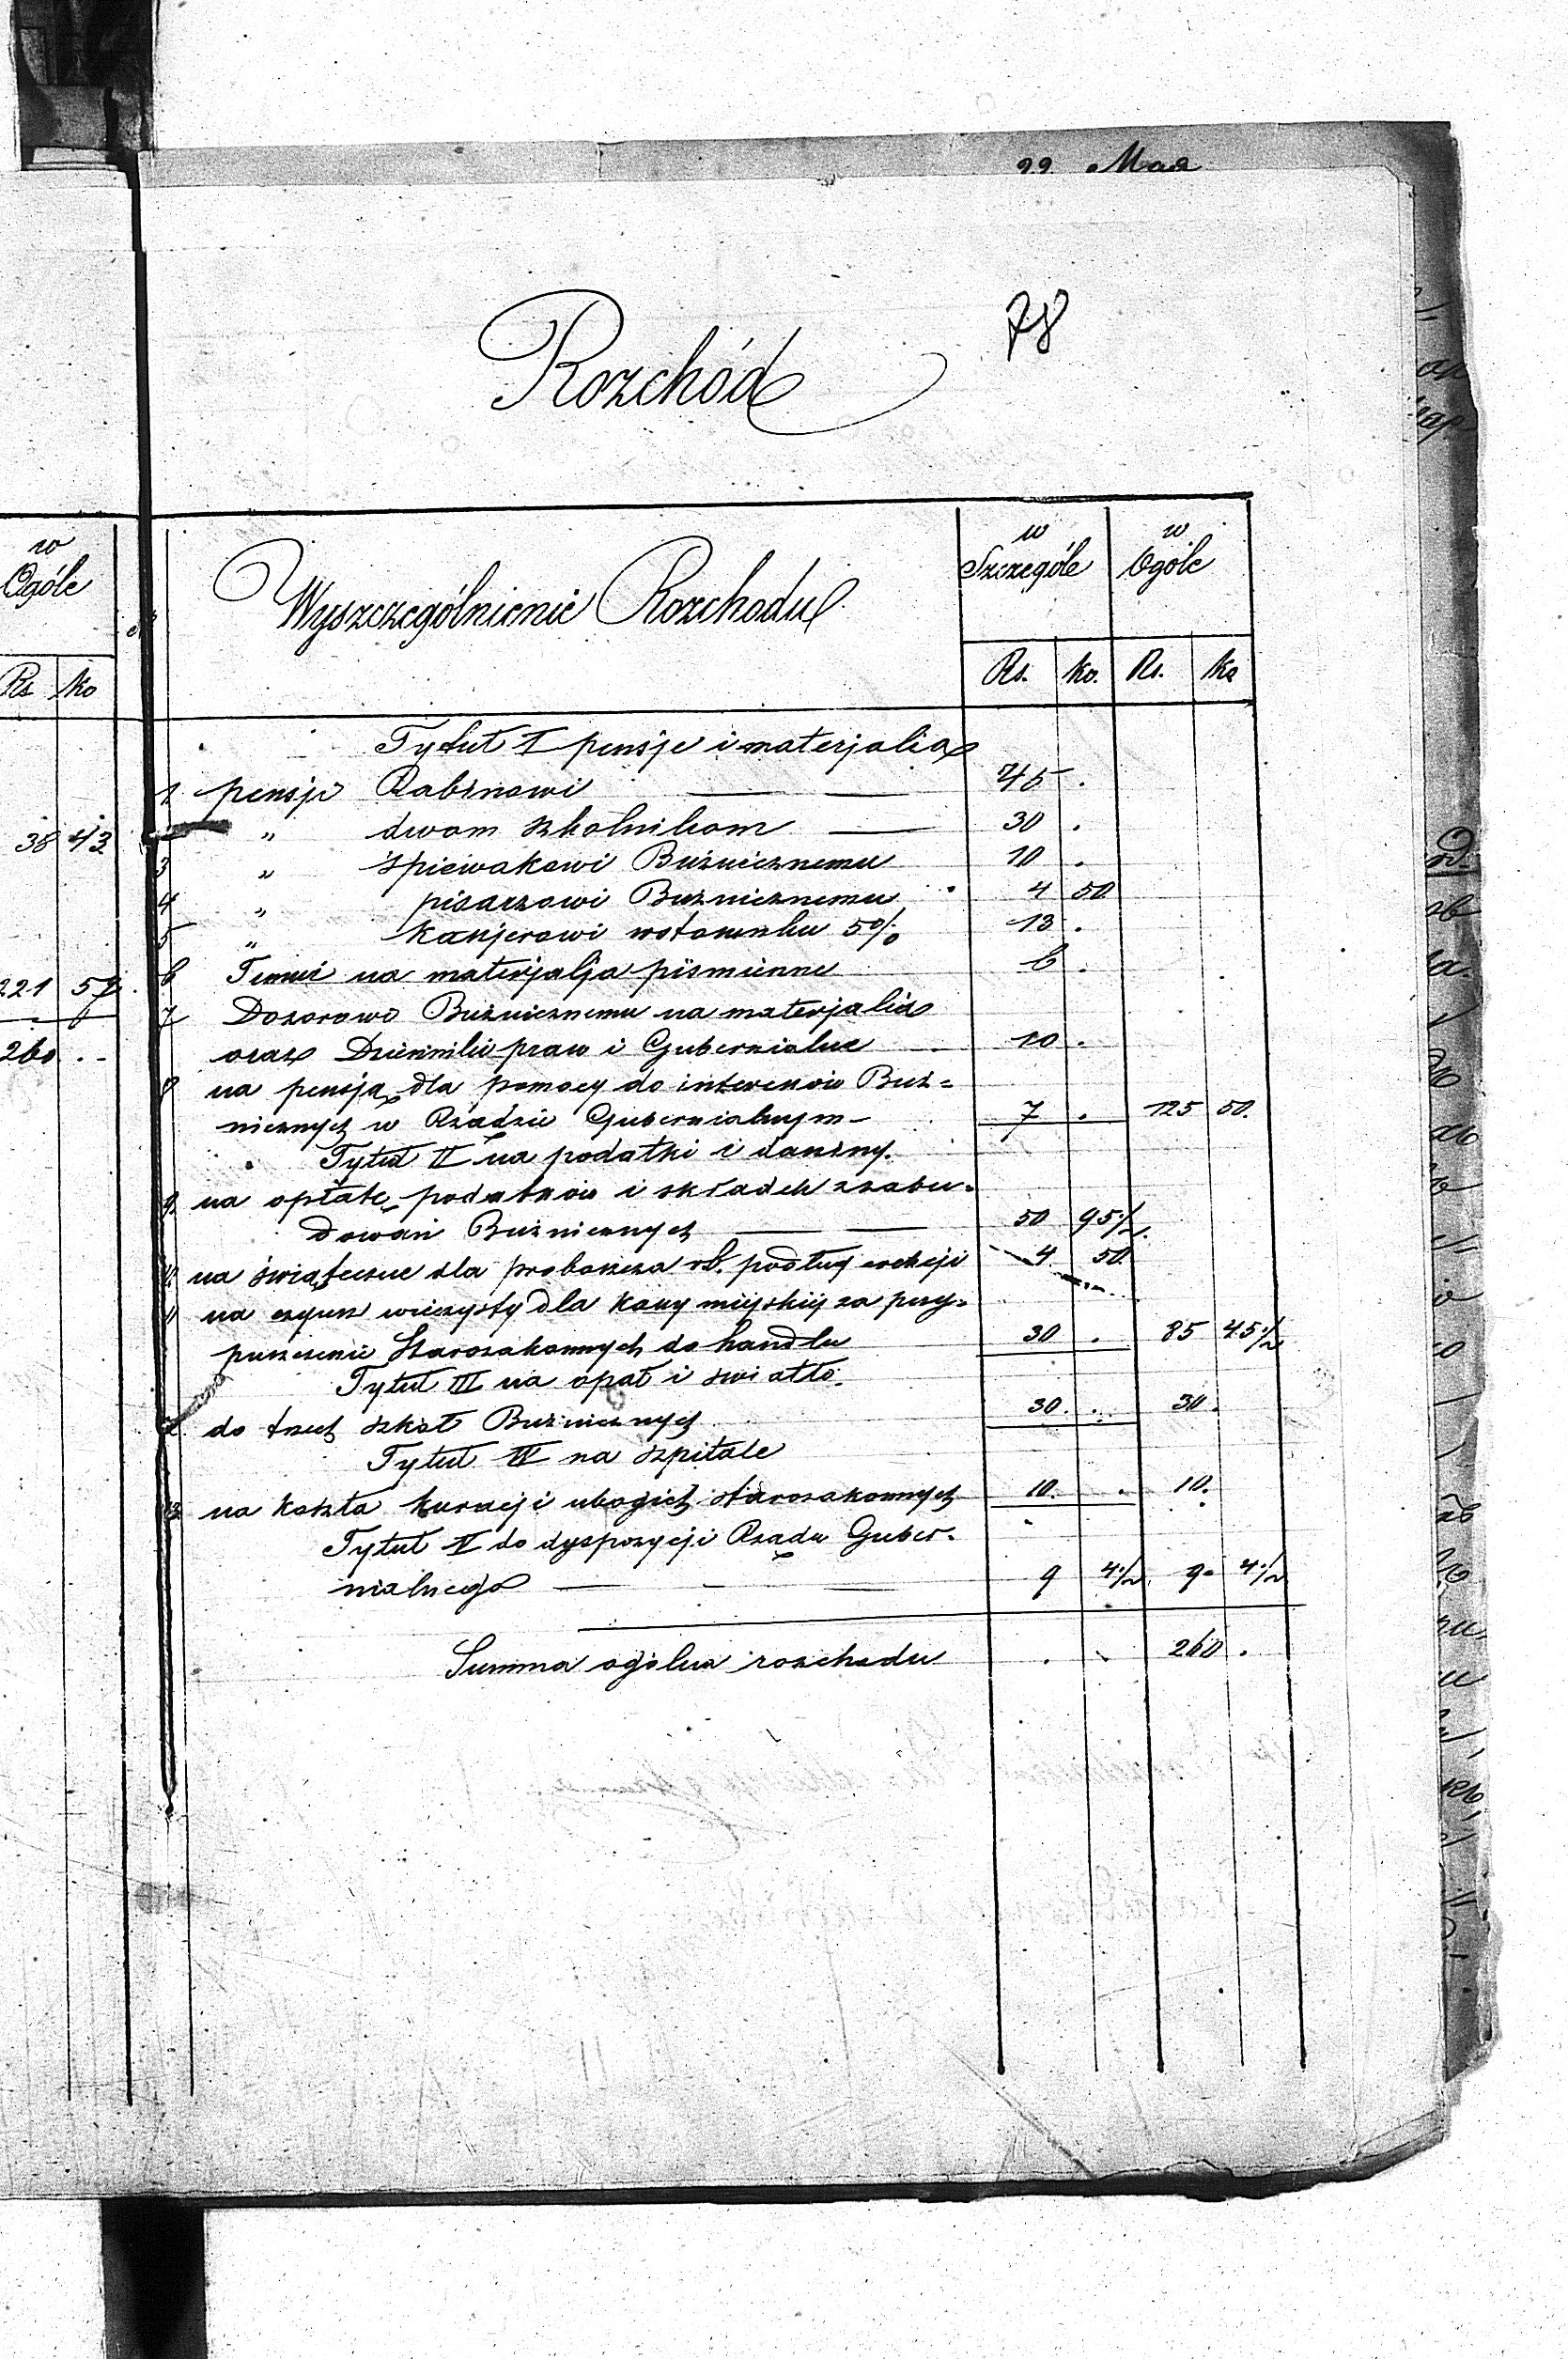 22 Мая
78
Rozchód
w Ogóle
Rs ko
38 43
221 57
260 . -
Wyszczególnienie Rozchodu
w Szczególe
w Ogóle
Rs. ko. Rs. ko
Tytuł I pensje i materjalia
1 pensji Rabinowi 45 .
" dwom szkolnikom 30 .
3 " śpiewakowi Bużnicznemu 10 .
4 " pisarzowi Bużnicznemu 4 50
5 " Kasjerowi w stosunku 5% 13 .
6 Temuż na materjalja piśmienne 6 .
7 Dozorowi Bużnicznemu na materjalia
oraz Dzienniki praw i Gubernialne 10 .
8 na pensją dla pomocy do interesów Buż=
nicznych w Rządzie Gubernialnym 7 . 125 50.
Tytuł II na podatki i daniny.
9. na opłatę podatków i składek z zabu=
dowań Bużnicznych 50 95½.
na świąteczne dla proboszcza podług erekcji 4 50.
11 na czynsz wieczysty dla Kassy miejskiej za przy=
puszczenie Starozakonnych do handlu 30 . 85 45½
Tytuł III na opał i światło.
do trzech szkół Bużnicznych 30. . 30.
Tytuł IV na szpitale
13 na koszta kuracji ubogich starozakonnych 10. . 10.
Tytuł V do dyspozycji Rządu Guber=
nialnego 9 4½ 9 4½
Summa ogólna rozchodu . . 260 .